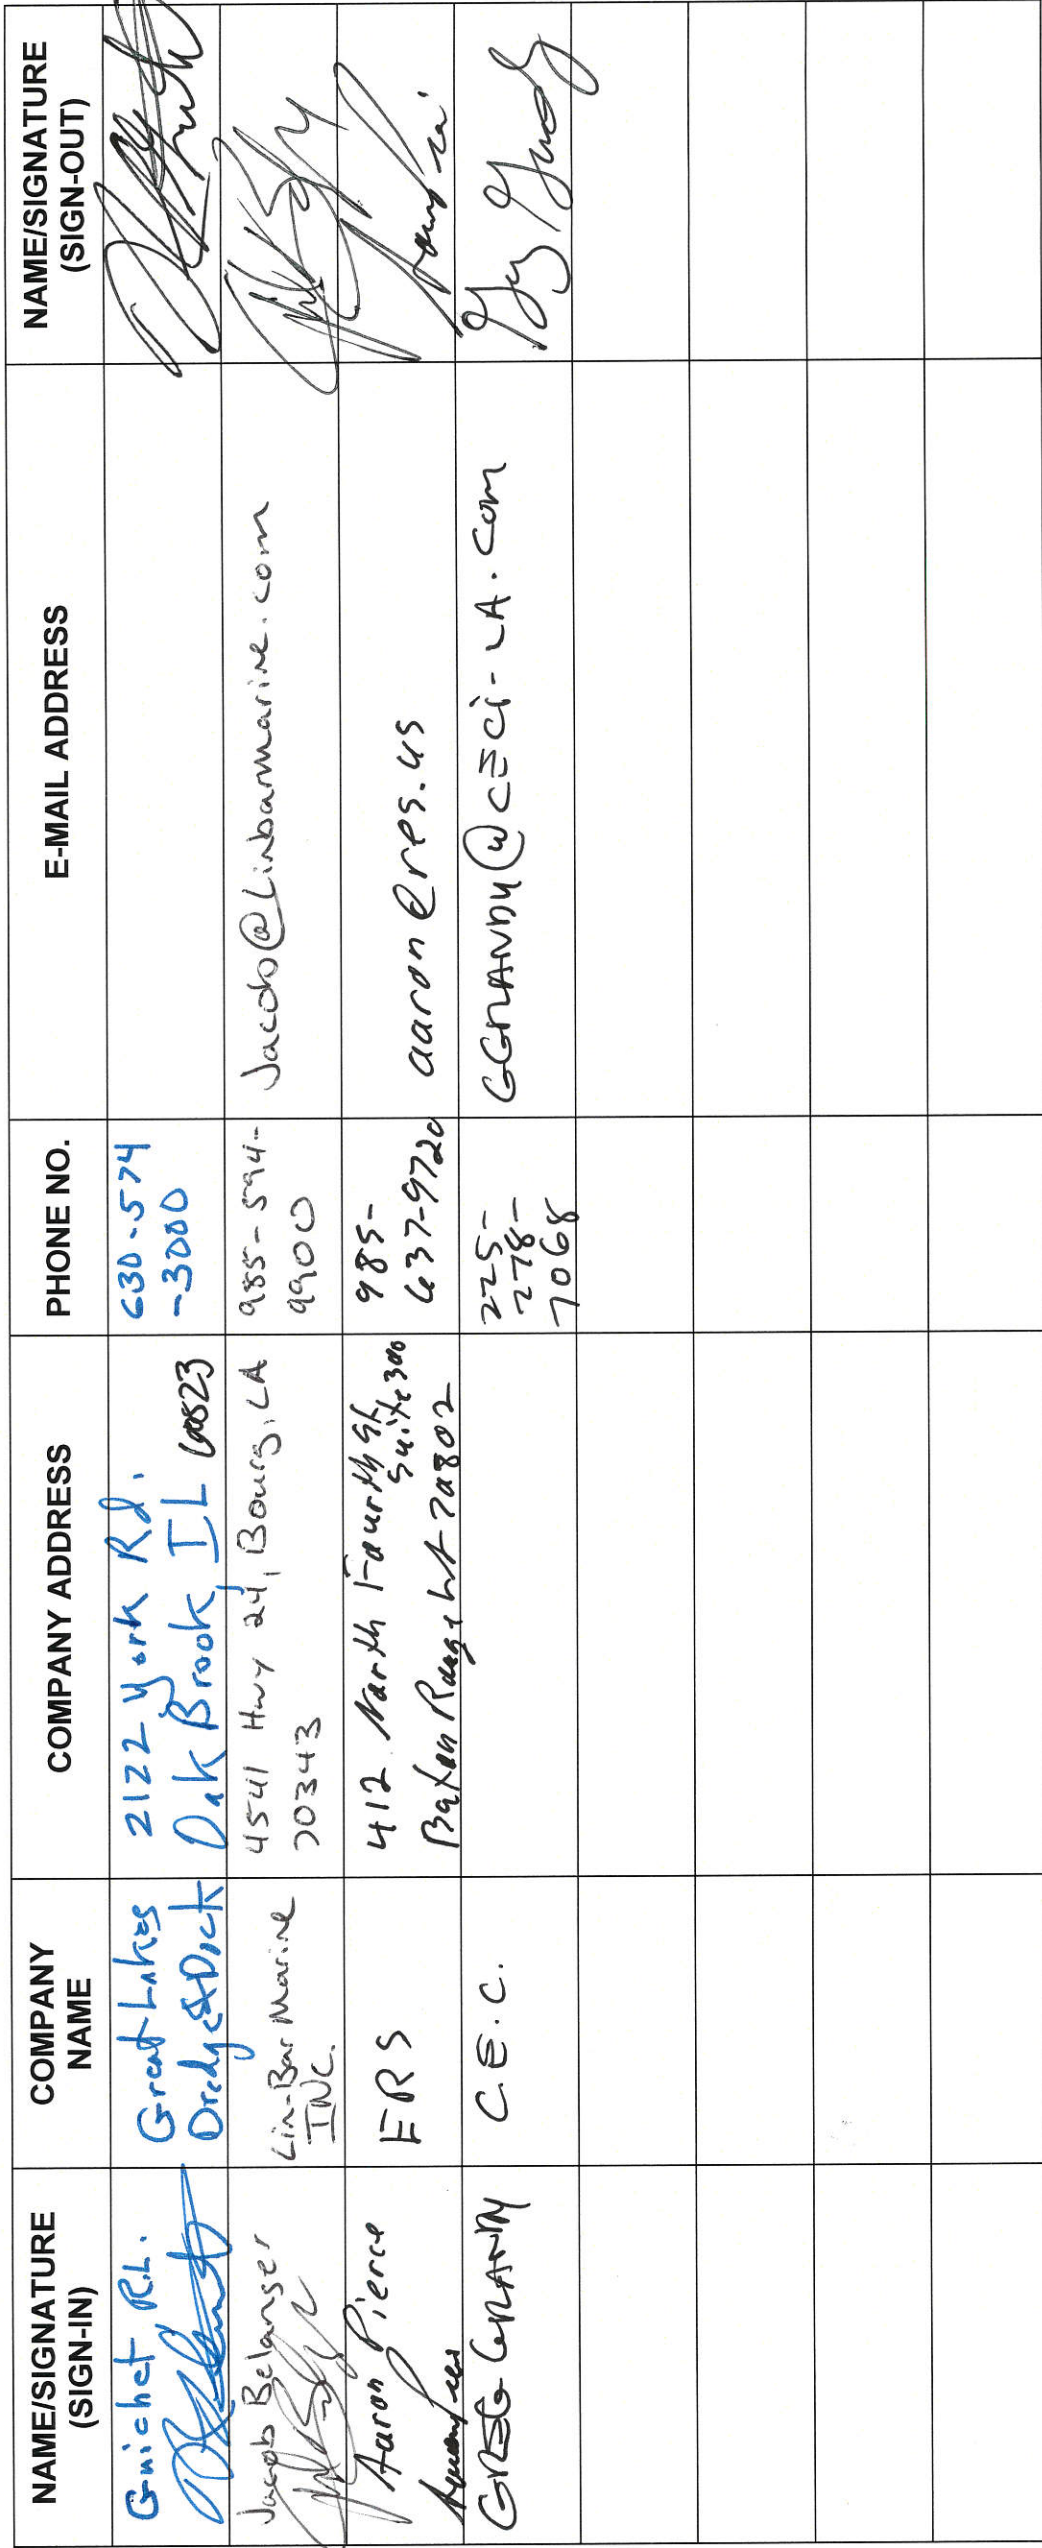 NAME/SIGNATURE
(SIGN-IN)
COMPANY
NAME
COMPANY ADDRESS
PHONE NO.
E-MAIL ADDRESS
NAME/SIGNATURE
(SIGN-OUT)
Guichet R.L.
Great Lakes
Dredge & Dock
2122 York Rd.
Oak Brook, IL 60523
630-574
-3000
Jacob Belanger
Lin-Bar Marine
INC.
4541 Hwy 24, Bourg, LA
70343
985-594-
9900
Jacob@Linbarmarine.com
Aaron Pierce
ERS
412 North Fourth St
Suite 300
Baton Rouge 70802
985-
637-9720
aaron@res.us
GREG GRANDY
C.E.C.
225-
278-
7068
GGRANDY@CECI-LA.COM